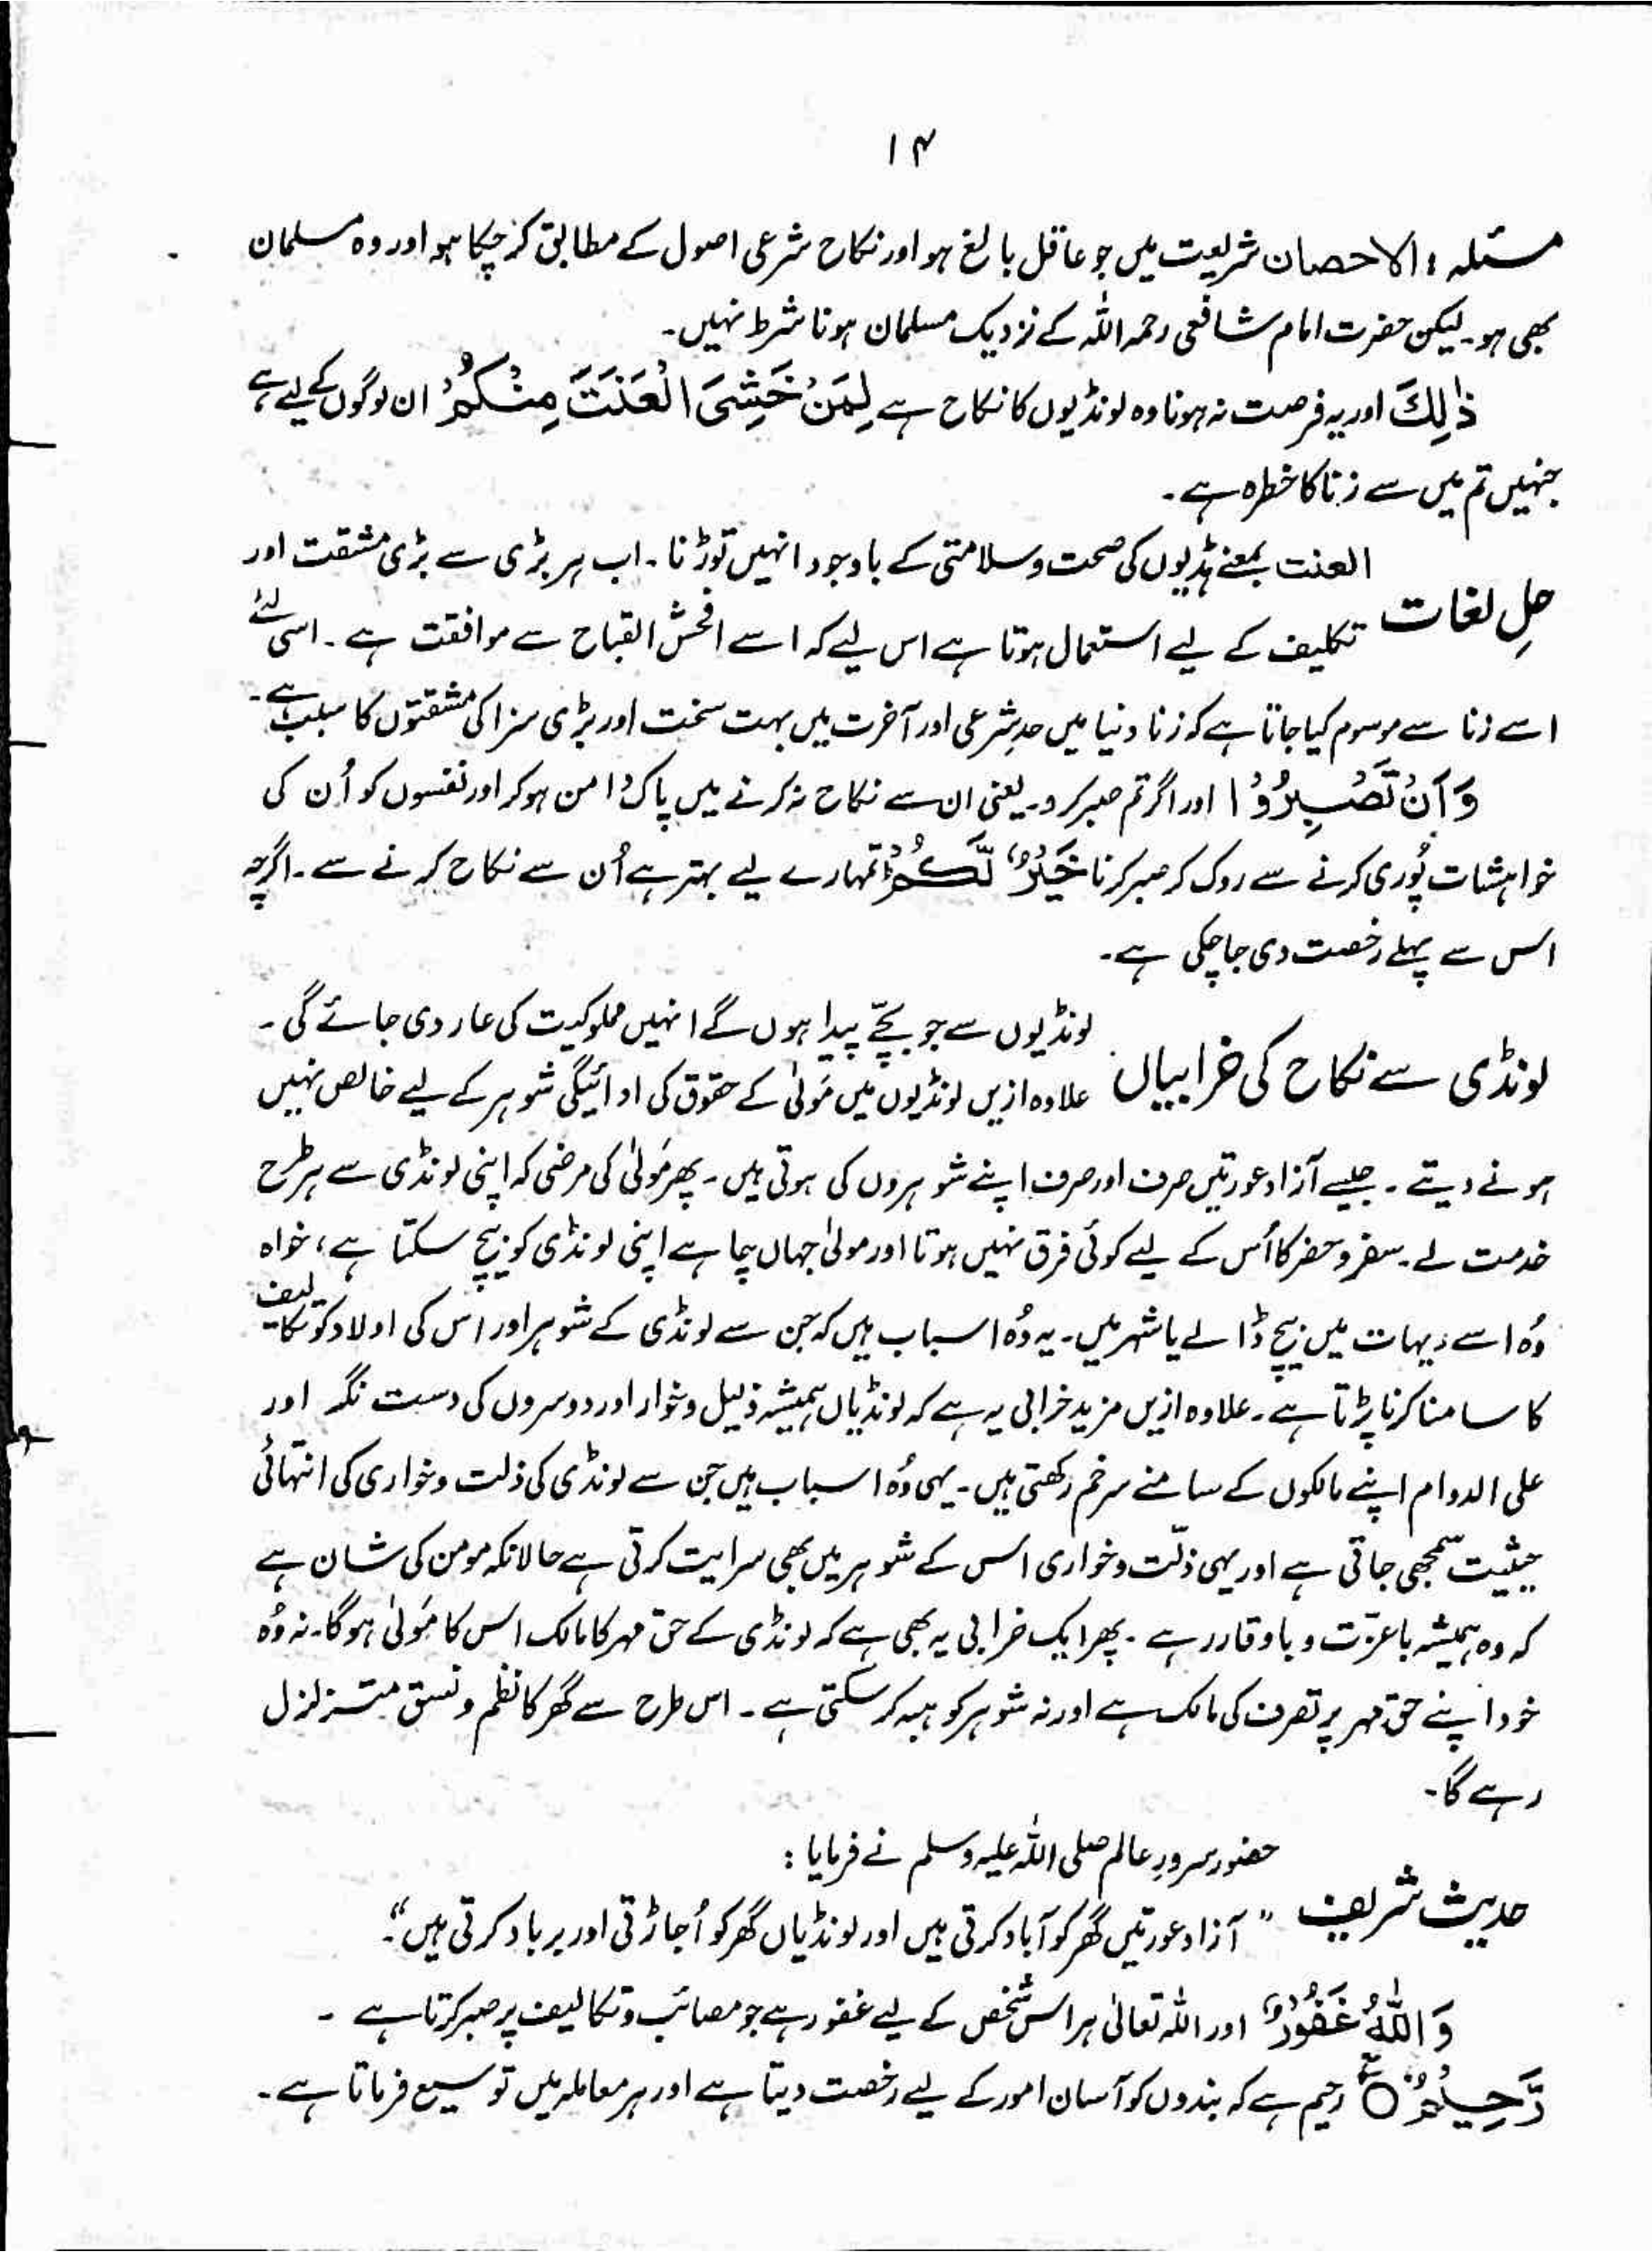 ۱۴
مسئلہ : الاحصان شریعت میں جو عاقل بالغ ہو اور نکاح شرعی اصول کے مطابق کر چکا ہو اور وہ مسلمان
بھی ہو۔ لیکن حضرت امام شافعی رحمہ اللہ کے نزدیک مسلمان ہونا شرط نہیں۔
ذٰلِكَ اور یہ فرصت نہ ہونا وہ لونڈیوں کا نکاح ہے لِمَنْ خَشِیَ الْعَنَتَ مِنْكُمْ ان لوگوں کے لیے ہے
جنہیں تم میں سے زنا کا خطرہ ہے۔
حلِ لغات العنت بمعنے ہڈیوں کی صحت و سلامتی کے باوجود انہیں توڑنا۔ اب ہر بڑی سے بڑی مشقت اور
تکلیف کے لیے استعمال ہوتا ہے اس لیے کہ اسے افحش القباح سے موافقت ہے۔ اسی لئے
اسے زنا سے موسوم کیا جاتا ہے کہ زنا دنیا میں حدِ شرعی اور آخرت میں بہت سخت اور بڑی سزا کی مشقتوں کا سبب ہے۔
وَاَنْ تَصْبِرُوْا اور اگر تم صبر کرو۔ یعنی ان سے نکاح نہ کرنے میں پاک دامن ہو کر اور نفسوں کو اُن کی
خواہشات پُوری کرنے سے روک کر صبر کرنا خَیْرٌ لَّكُمْ تمہارے لیے بہتر ہے اُن سے نکاح کرنے سے۔ اگرچہ
اس سے پہلے رخصت دی جا چکی ہے۔
لونڈی سے نکاح کی خرابیاں لونڈیوں سے جو بچّے پیدا ہوں گے انہیں مملوکیت کی عار دی جائے گی۔
علاوہ ازیں لونڈیوں میں مَولیٰ کے حقوق کی ادائیگی شوہر کے لیے خالص نہیں
ہونے دیتے۔ جیسے آزاد عورتیں صرف اور صرف اپنے شوہروں کی ہوتی ہیں۔ پھر مَولیٰ کی مرضی کہ اپنی لونڈی سے ہر طرح
خدمت لے۔ سفر و حضر کا اُس کے لیے کوئی فرق نہیں ہوتا اور مولیٰ جہاں چاہے اپنی لونڈی کو بیچ سکتا ہے، خواہ
وُہ اسے دیہات میں بیچ ڈالے یا شہر میں۔ یہ وُہ اسباب ہیں کہ جن سے لونڈی کے شوہر اور اس کی اولاد کو تکالیف
کا سامنا کرنا پڑتا ہے۔ علاوہ ازیں مزید خرابی یہ ہے کہ لونڈیاں ہمیشہ ذلیل و خوار اور دوسروں کی دست نگر اور
علی الدوام اپنے مالکوں کے سامنے سرخم رکھتی ہیں۔ یہی وُہ اسباب ہیں جن سے لونڈی کی ذلت و خواری کی انتہائی
حیثیت سمجھی جاتی ہے اور یہی ذلّت و خواری اس کے شوہر میں بھی سرایت کرتی ہے حالانکہ مومن کی شان ہے
کہ وہ ہمیشہ باعزّت و باوقار رہے۔ پھر ایک خرابی یہ بھی ہے کہ لونڈی کے حق مہر کا مالک اس کا مَولیٰ ہو گا۔ نہ وُہ
خود اپنے حق مہر پر تصرف کی مالک ہے اور نہ شوہر کو ہبہ کر سکتی ہے۔ اس طرح سے گھر کا نظم و نسق متزلزل
رہے گا۔
حدیث شریف حضور سرورِ عالم صلی اللہ علیہ وسلم نے فرمایا :
" آزاد عورتیں گھر کو آباد کرتی ہیں اور لونڈیاں گھر کو اُجاڑتی اور برباد کرتی ہیں۔"
وَاللّٰهُ غَفُوْرٌ اور اللہ تعالیٰ ہر اس شخص کے لیے غفور ہے جو مصائب و تکالیف پر صبر کرتا ہے ۔
رَّحِیْمٌ ۝ ع رحیم ہے کہ بندوں کو آسان امور کے لیے رخصت دیتا ہے اور ہر معاملہ میں توسیع فرماتا ہے۔